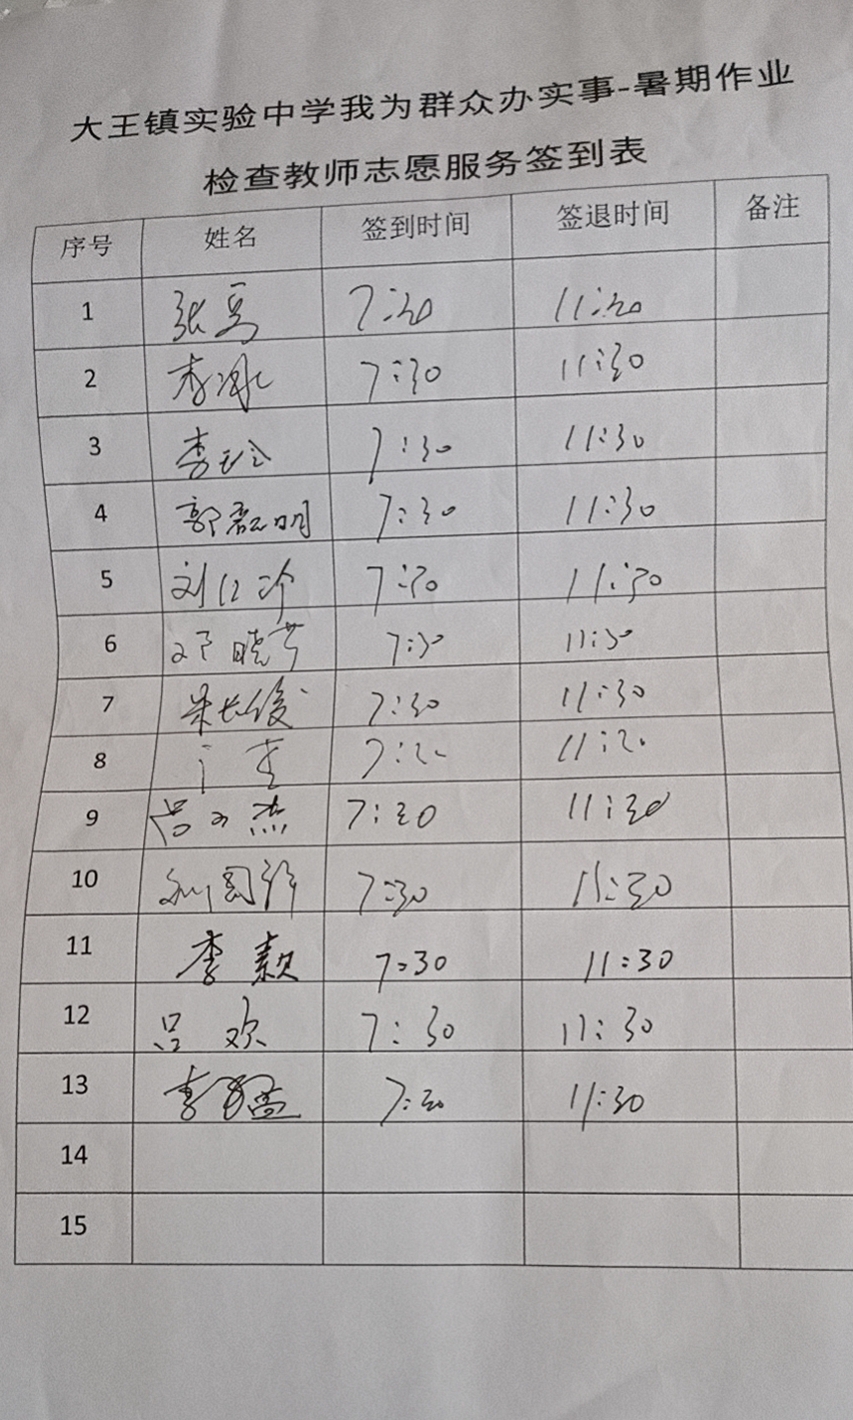 大王镇实验中学我为群众办实事-暑期作业
检查教师志愿服务签到表
序号 姓名 签到时间 签退时间 备注
1 张 7:30 11:30
2 李 7:30 11:30
3 李玲 7:30 11:30
4 郭磊明 7:30 11:30
5 刘仁珍 7:30 11:30
6 邓晓芳 7:30 11:30
7 朱长俊 7:30 11:30
8
9 杰 7:30 11:30
10 刘国 7:30 11:30
11 李颖 7:30 11:30
12 吕欢 7:30 11:30
13 李 7:30 11:30
14
15